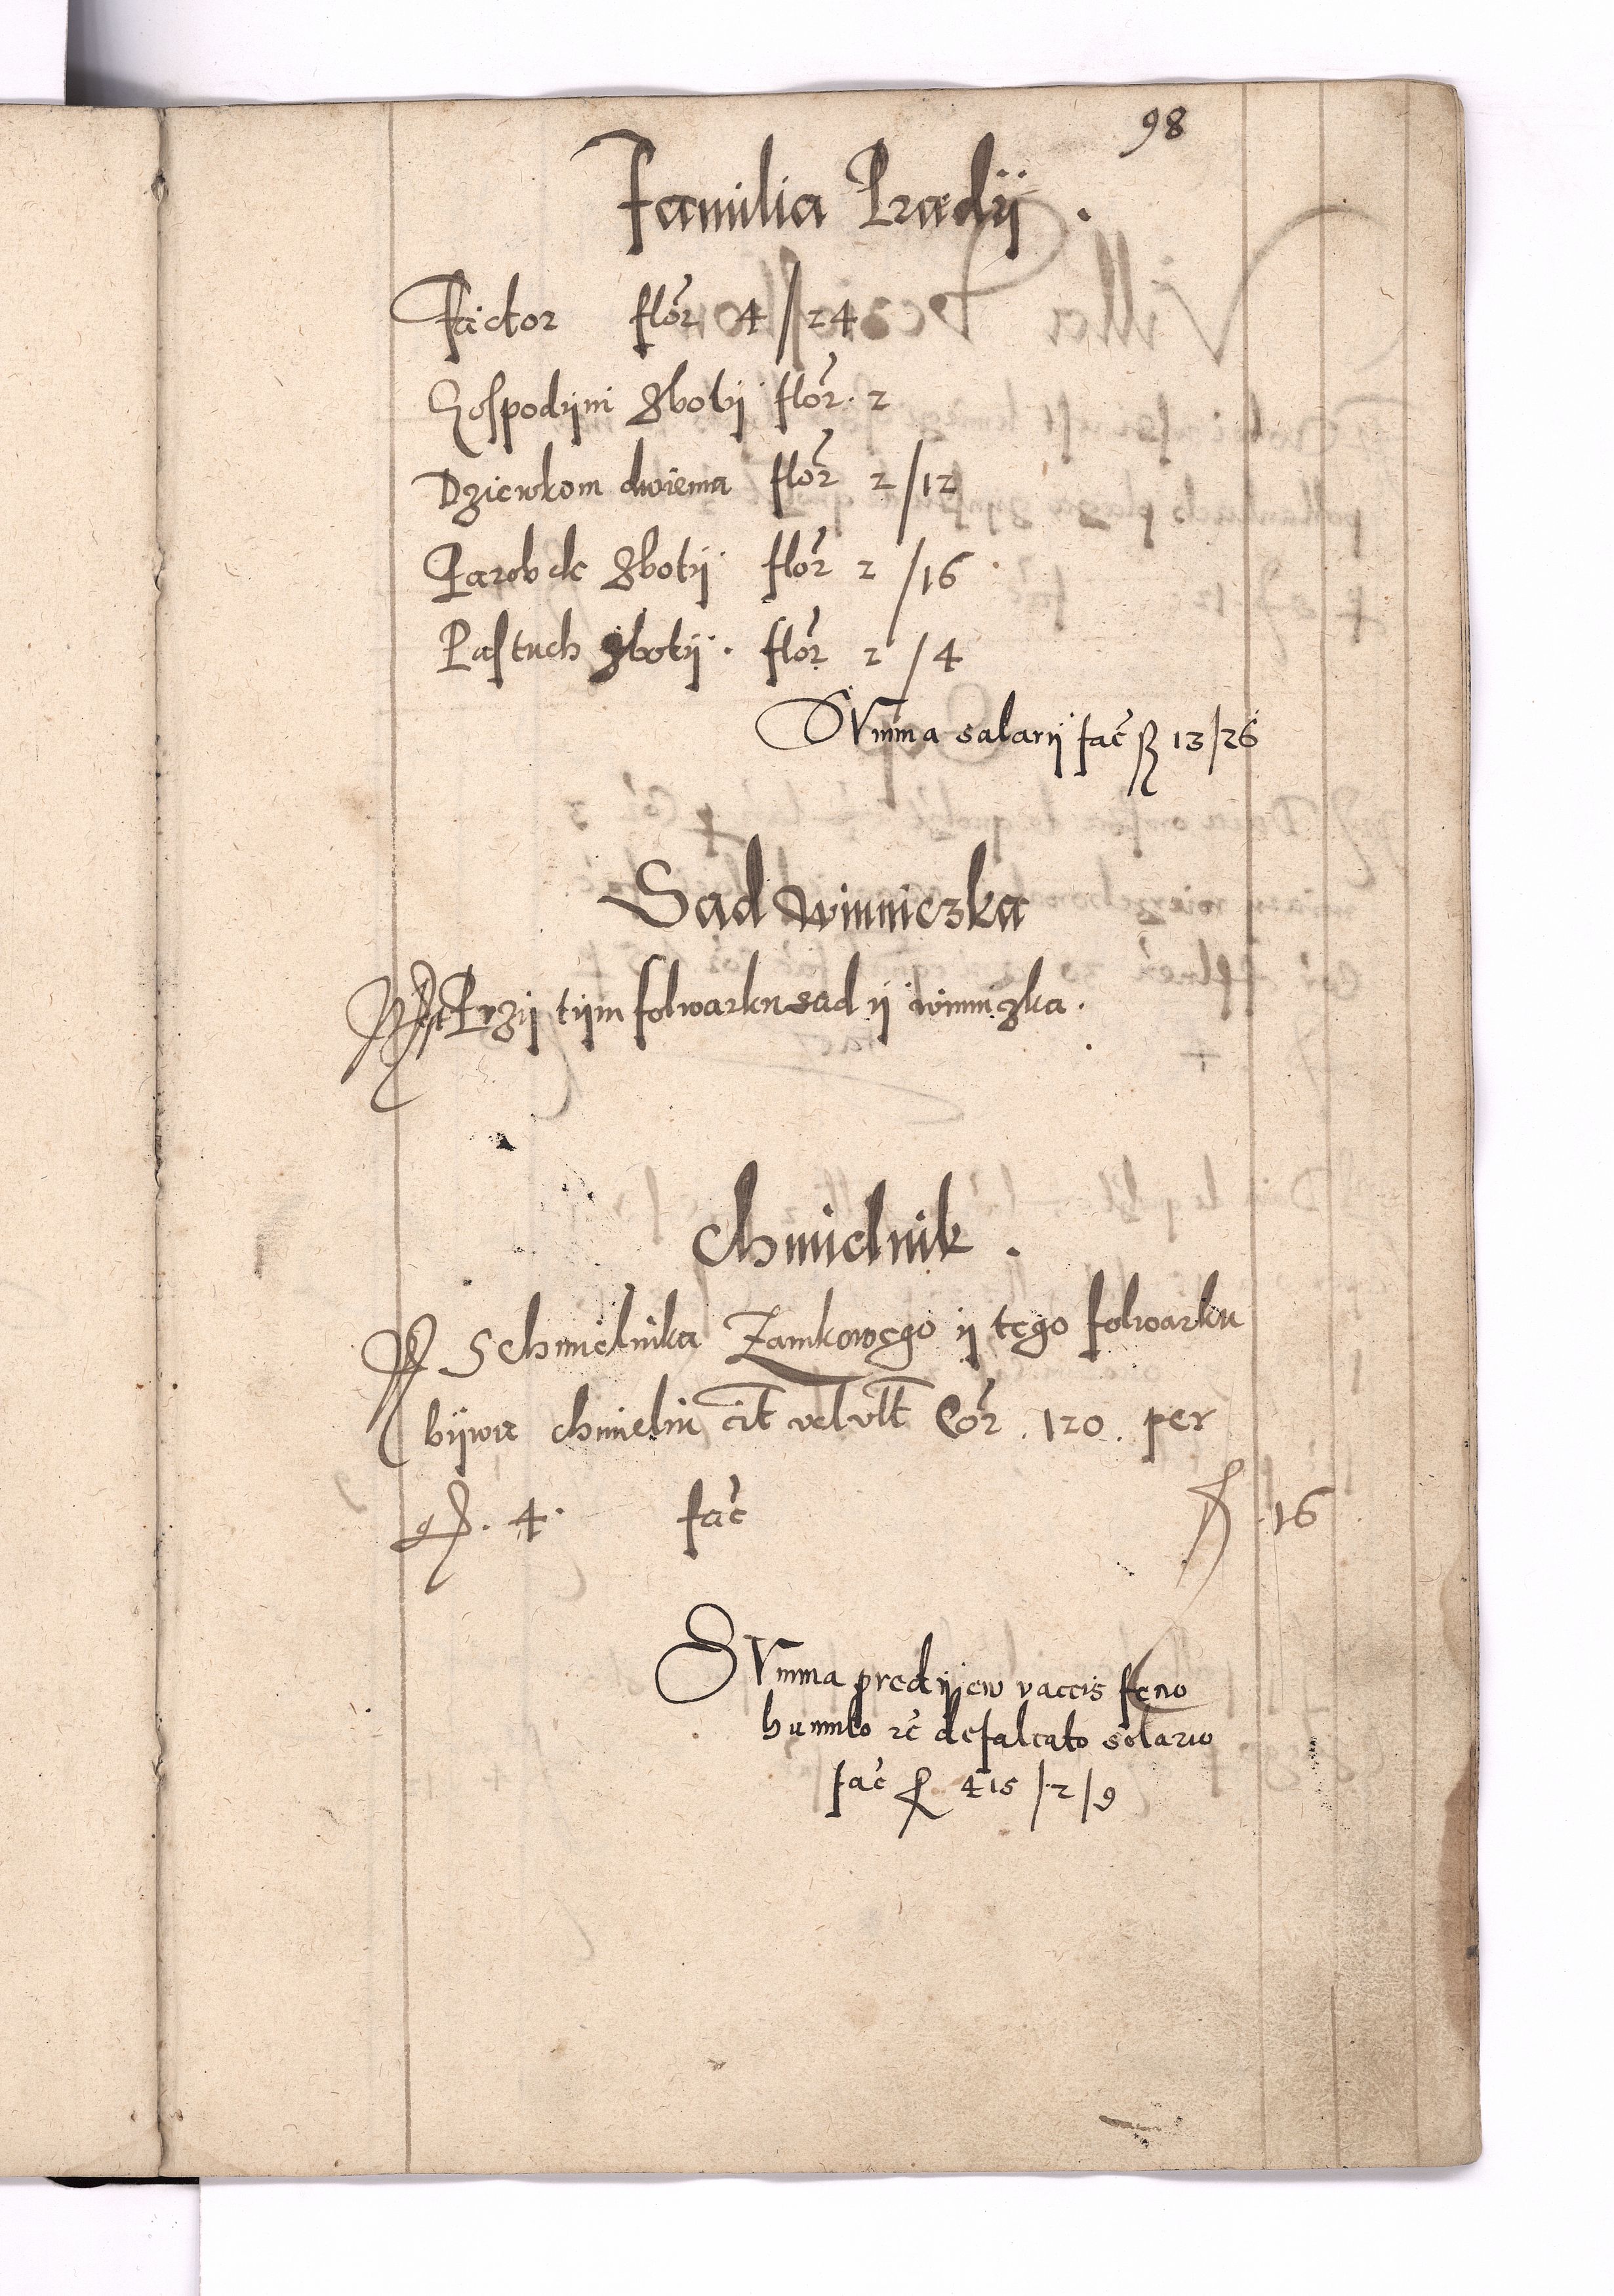 98
Familia Prædij .
Factor flor 4/24
Gospodijni Zbotij flor. 2
Dziewkom dwiema flor 2/12
Parobek Zbotij flor 2/16
Pastuch Zbotij . flor 2/4
SVmma salarij fac 13/26
Sad winniczka
Jest Przij tijm folwarku sad ij winniczka .
Chmielnik .
S chmielnika Zamkowego ij tego folwarku
bijwa chmielu cit vel vlt Cor . 120 . per
gr . 4 . fac 16
SVmma predij cw vaccis feno
humulo rc defalcato solario
fac 415/2/9